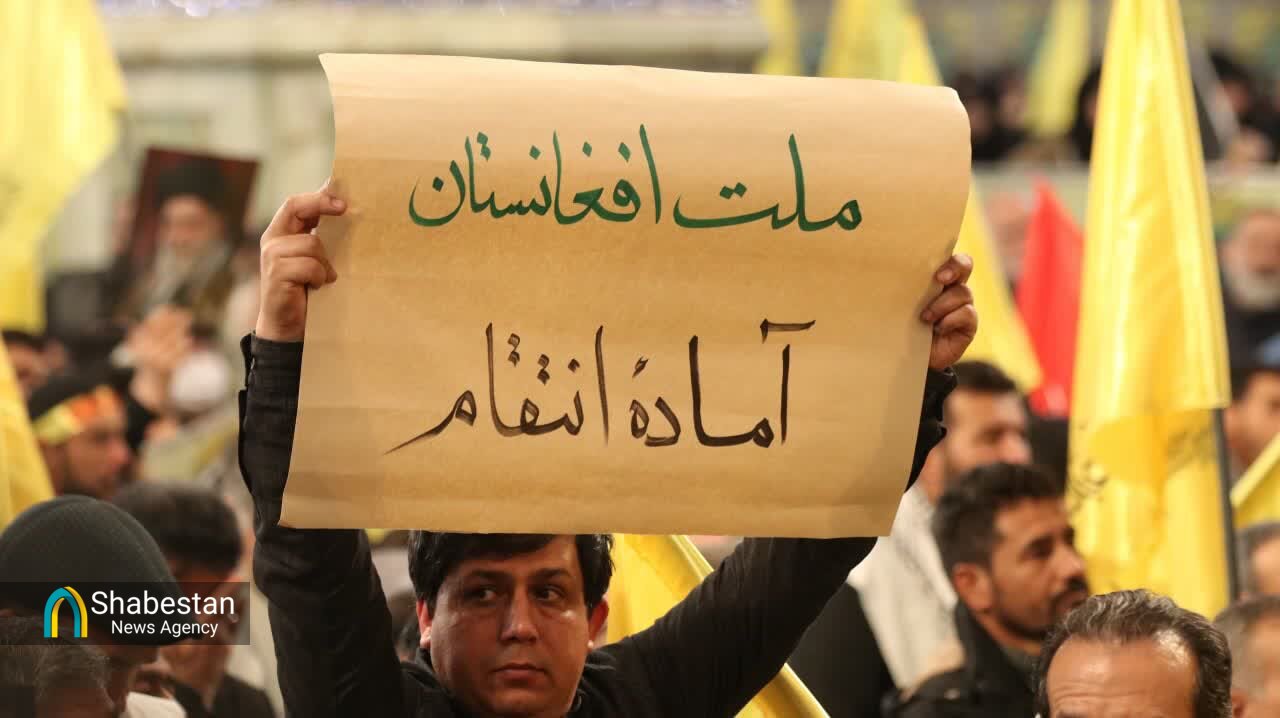 ملت افغانستان
آمادهٔ انتقام
Shabestan
News Agency